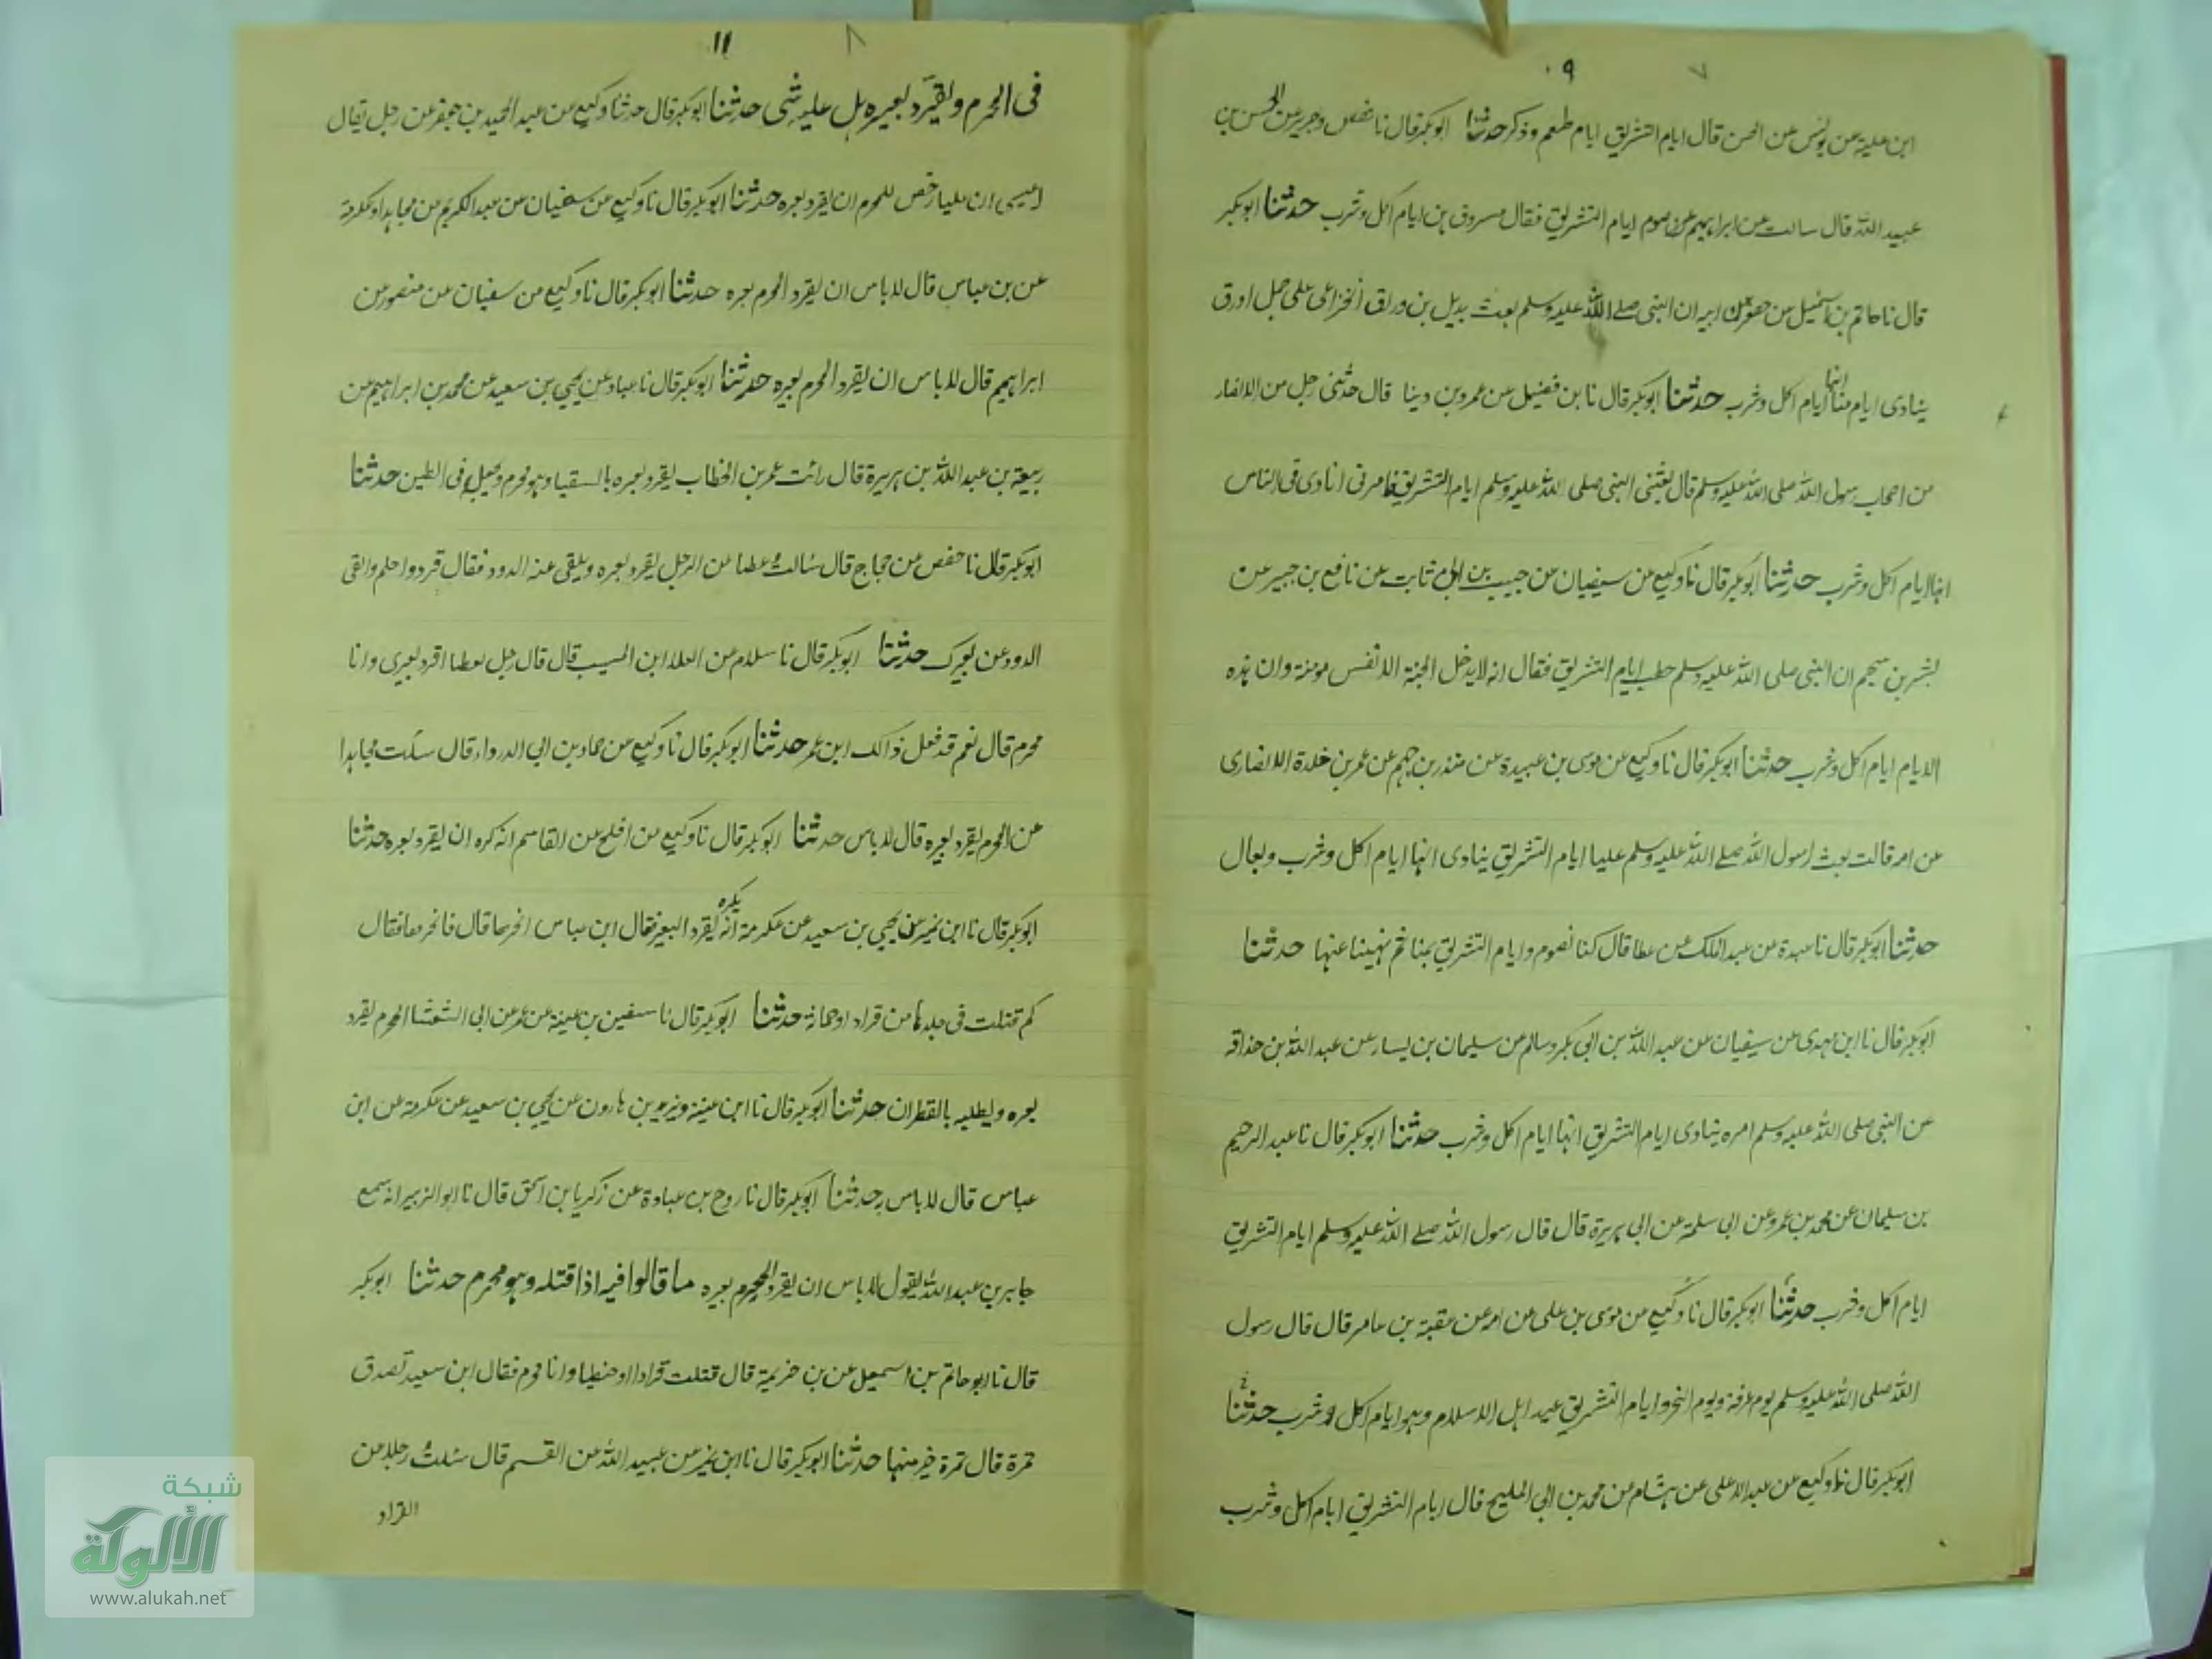 ٩
٧
ابن علية عن يونس عن الحسن قال ايام التشريق ايام طعم وذكر حدثنا ابوبكر قال نا حفص وجرير عن الحسن بن
عبيد الله قال سالت عن ابراهيم عن صوم ايام التشريق فقال مسروق هن ايام اكل وشرب حدثنا ابوبكر
قال نا حاتم بن اسمعيل عن جعفر عن ابيه ان النبي صلى الله عليه وسلم بعث بديل بن ورقا الخزاعى على جمل اورق
ينادى ايام منا انها ايام اكل وشرب حدثنا ابوبكر قال نا بن فضيل عن عمرو بن دينا قال حدثنى رجل من الانصار
من اصحاب رسول الله صلى الله عليه وسلم قال بعثنى النبى صلى الله عليه وسلم ايام التشريق فامرنى انادى فى الناس
انها ايام اكل وشرب حدثنا ابوبكر قال نا وكيع عن سفيان عن حبيب بن ابى ثابت عن نافع بن جبير عن
بشر بن سحيم ان النبى صلى الله عليه وسلم خطب ايام التشريق فقال انه لا يدخل الجنة الا نفس مومنة وان هذه
الايام ايام اكل وشرب حدثنا ابوبكر قال نا وكيع عن موسى بن عبيدة عن منذر بن جهم عن عمر بن خلدة الانصارى
عن امه قالت بعث رسول الله صلى الله عليه وسلم عليا ايام التشريق ينادى انها ايام اكل وشرب وبعال
حدثنا ابوبكر قال نا عبدة عن عبد الملك عن عطا قال كنا نصوم ايام التشريق بمنا ثم نهينا عنها حدثنا
ابوبكر قال نا ابن مهدى عن سفيان عن عبد الله بن ابى بكر وسالم عن سليمان بن يسار عن عبد الله بن حذافه
عن النبى صلى الله عليه وسلم امره ينادى ايام التشريق انها ايام اكل وشرب حدثنا ابوبكر قال نا عبد الرحيم
بن سليمان عن محمد بن عمرو عن ابى سلمة عن ابى هريرة قال قال رسول الله صلى الله عليه وسلم ايام التشريق
ايام اكل وشرب حدثنا ابوبكر قال نا وكيع عن موسى بن على عن امه عن عقبة بن عامر قال قال رسول
الله صلى الله عليه وسلم يوم عرفة ويوم النحر وايام التشريق عيد اهل الاسلام وهو ايام اكل وشرب حدثنا
ابوبكر قال نا وكيع عن عبد الاعلى عن هشام عن محمد بن ابى المليح قال ايام التشريق ايام اكل وشرب
١١
٨
فى المحرم ويقرد بعيره هل عليه شى حدثنا ابوبكر قال حدثنا وكيع عن عبد الحميد بن جعفر عن رجل يقال
عيسى ان عليا رخص للمحرم ان يقرد بعره حدثنا ابوبكر قال نا وكيع عن سفيان عن عبد الكريم عن مجاهد او عكرمة
عن بن عباس قال لاباس ان يقرد المحرم بعره حدثنا ابوبكر قال نا وكيع عن سفيان عن منصور عن
ابراهيم قال لاباس ان يقرد المحرم بعيره حدثنا ابوبكر قال نا عباد عن يحيى بن سعيد عن محمد بن ابراهيم عن
ربيعة بن عبد الله بن هريرة قال رائت عمر بن الخطاب يقرد بعره بالسقيا وهو محرم ويجعله فى الطين حدثنا
ابوبكر قال نا حفص عن حجاج قال سالت عطا عن الرجل يقرد بعره ويلقى عنه الدود فقال قردوا حلم والقى
الدود عن بعيرك حدثنا ابوبكر قال نا سلام عن العلا ابن المسيب قال قال رجل لعطا اقرد بعيرى وانا
محرم قال نعم قد فعل ذالك ابن عمر حدثنا ابوبكر قال نا وكيع عن حماد بن ابى الدرداء قال سئلت مجاهدا
عن المحرم يقرد بعيره قال لاباس حدثنا ابوبكر قال نا وكيع عن افلح عن القاسم انه كره ان يقرد بعره حدثنا
ابوبكر قال نا ابن نمير عن يحيى بن سعيد عن عكرمة انه يكره يقرد البعير فقال ابن عباس انحرها قال فانحرها فقال
كم قتلت فى جلدها من قراد او حمانة حدثنا ابوبكر قال نا سفين بن عينة عن عمر عن ابى الشعشا المحرم يقرد
بعره ويطليه بالقطران حدثنا ابوبكر قال نا ابن عينة ويزيد بن هارون عن يحيى بن سعيد عن عكرمة عن ابن
عباس قال لاباس به حدثنا ابوبكر قال نا روح بن عبادة عن زكريا بن اسحق قال نا ابو الزبير انه سمع
جابر بن عبد الله يقول لاباس ان يقرد المحرم بعره ما قالوا فيه اذا قتله وهو محرم حدثنا ابوبكر
قال نا ابو حاتم بن اسمعيل عن بن حزيمة قال قتلت قرادا او حنطبا وانا محرم فقال ابن سعيد تصدق
تمرة قال تمرة خير منها حدثنا ابوبكر قال نا ابن نمير عن عبيد الله عن القسم قال سئلت رجلا عن
القراد
شبكة
الألوكة
www.alukah.net